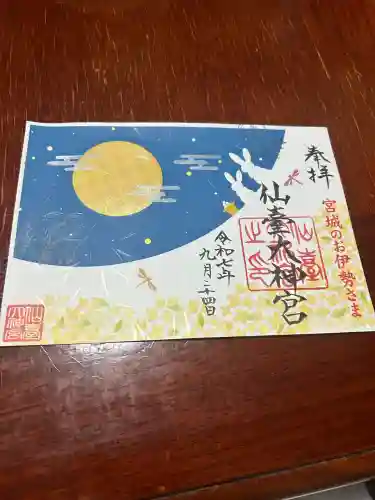 奉拝
宮城のお伊勢さま
仙臺大神宮
令和七年
九月二十四日